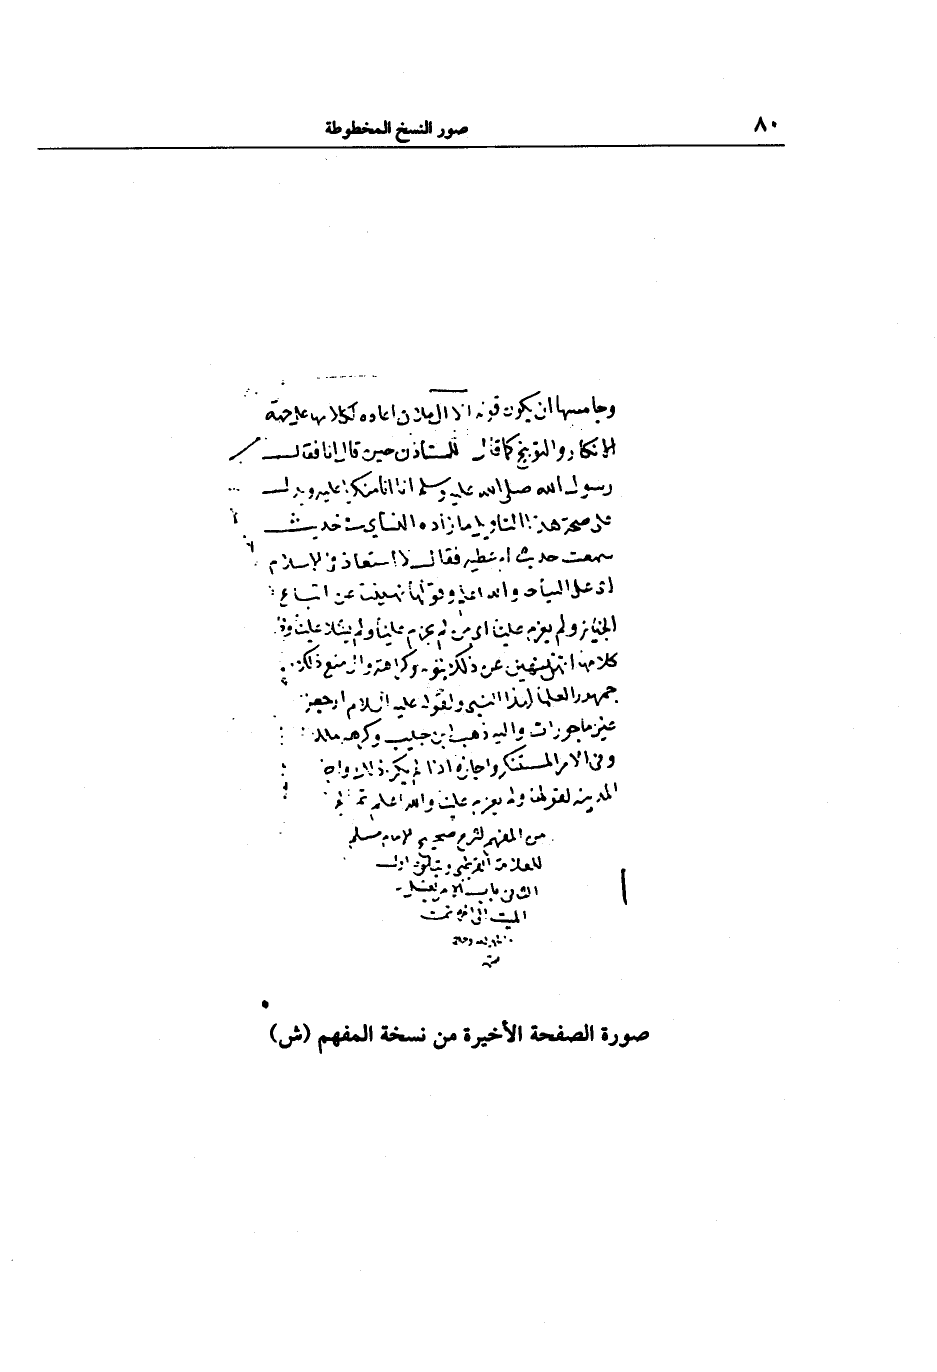 ٨٠
صور النسخ المخطوطة
وخامسها ان يكون قوله الا ال فلان اعاده لكلامها على جهة
الانكار والتوبيخ كما قال للمستاذن حين قال انا فقال
رسول الله صلى الله عليه وسلم انا انا منكرا عليه ويدل
على صحة هذا التاويل ما زاده النساي في حديث
حديث ام عطيه فقال لا اسعاد في الاسلام
والله اعلم وقولها نهينا عن اتباع
الجنايز ولم يعزم علينا اي لم يحرم علينا ولم يشدد علينا
كلامها انهن نهين عن ذلك نهي كراهة والى منع ذلك
جمهور العلما لهذا النهي ولقوله عليه السلام ارجعن
غير ماجورات واليه ذهب ابن حبيب وكرهه مالك
وفي الامر المستنكر واجازه اذا لم يكن ذلك
المدينه لقولها ولم يعزم علينا والله اعلم تم
من المفهم لشرح صحيح الامام مسلم
للعلامة القرطبي ويتلوه اول
الثاني باب الامر بغسل
الميت الى اخره تمت
صورة الصفحة الأخيرة من نسخة المفهم (ش)